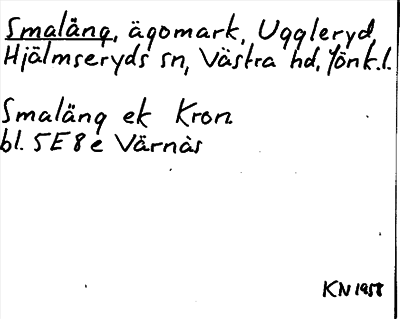 Smaläng, ägomark, Uggleryd,
Hjälmseryds sn, Västra hd, Jönk.l.
Smaläng ek Kron.
bl. 5E8e Värnäs
KN 1958